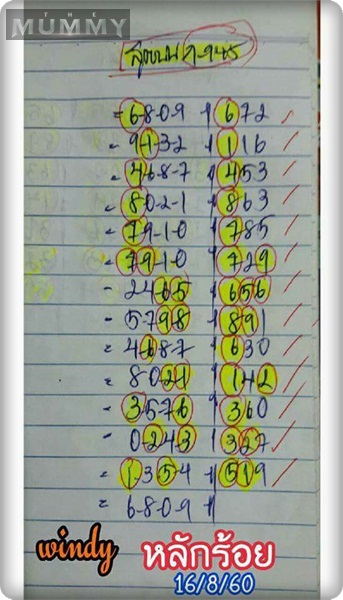 THE
MUMMY
= 6-8-0-9 || 672 ✓
- 9-1-3-2 || 116 ✓
- 4-6-8-7 || 453 ✓
= 8-0-2-1 || 863 ✓
= 7-9-1-0 || 785 ✓
= 7-9-1-0 || 729 ✓
- 2-4-6-5 || 656 ✓
- 5-7-9-8 || 891 ✓
= 4-6-8-7 || 630 ✓
= 8-0-2-1 || 142 ✓
- 3-5-7-6 || 360 ✓
- 0-2-4-3 || 327 ✓
= 1-3-5-4 || 519 ✓
= 6-8-0-9 ||
windy หลักร้อย
16/8/60